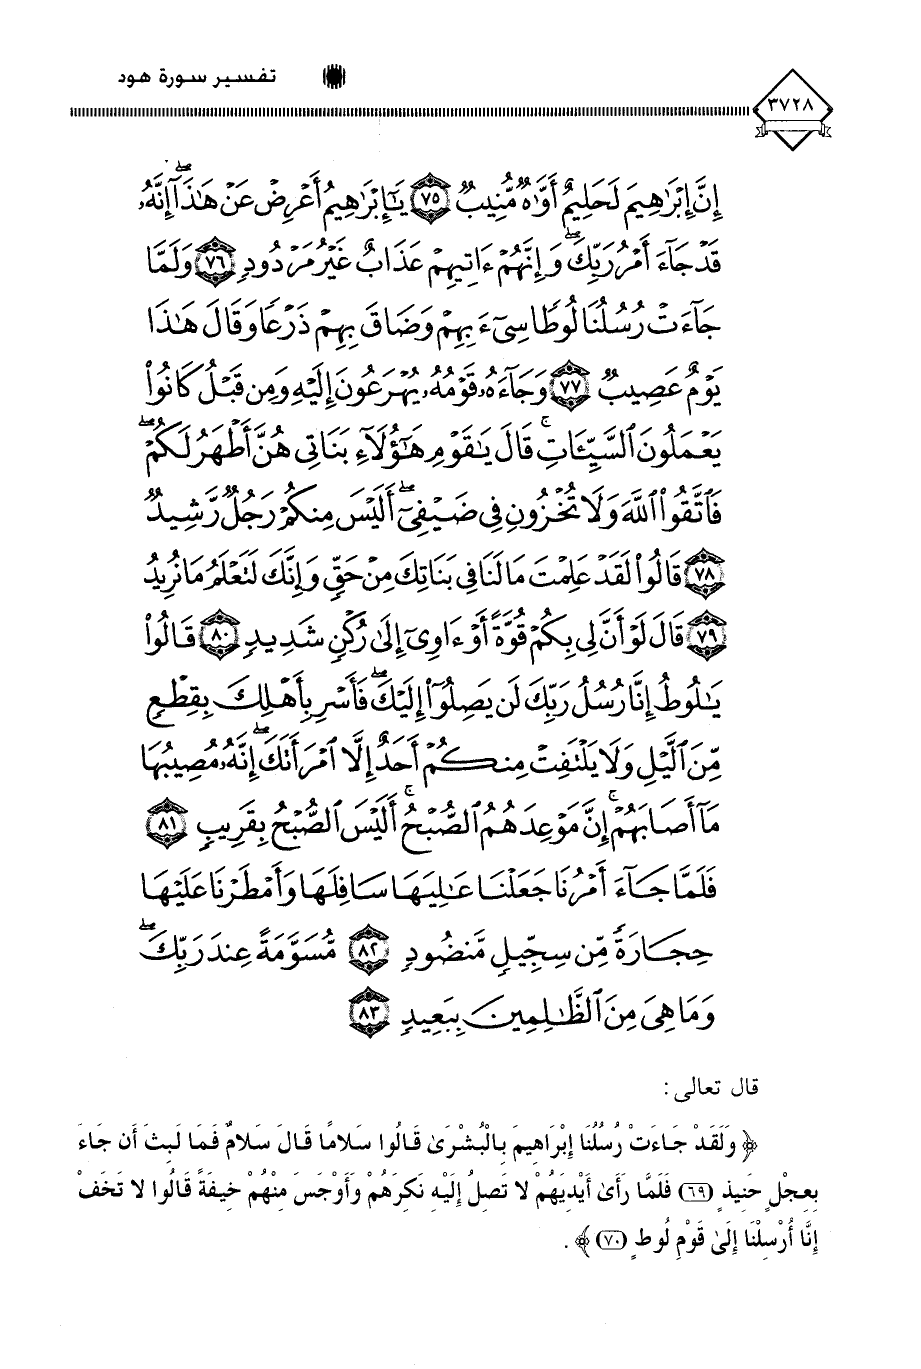 ٣٧٢٨ تفسير سورة هود
إِنَّ إِبْرَٰهِيمَ لَحَلِيمٌ أَوَّٰهٌ مُّنِيبٌ ٧٥ يَٰٓإِبْرَٰهِيمُ أَعْرِضْ عَنْ هَٰذَآ ۖ إِنَّهُۥ
قَدْ جَآءَ أَمْرُ رَبِّكَ ۖ وَإِنَّهُمْ ءَاتِيهِمْ عَذَابٌ غَيْرُ مَرْدُودٍ ٧٦ وَلَمَّا
جَآءَتْ رُسُلُنَا لُوطًا سِىٓءَ بِهِمْ وَضَاقَ بِهِمْ ذَرْعًا وَقَالَ هَٰذَا
يَوْمٌ عَصِيبٌ ٧٧ وَجَآءَهُۥ قَوْمُهُۥ يُهْرَعُونَ إِلَيْهِ وَمِن قَبْلُ كَانُوا۟
يَعْمَلُونَ ٱلسَّيِّـَٔاتِ ۚ قَالَ يَٰقَوْمِ هَٰٓؤُلَآءِ بَنَاتِى هُنَّ أَطْهَرُ لَكُمْ ۖ
فَٱتَّقُوا۟ ٱللَّهَ وَلَا تُخْزُونِ فِى ضَيْفِىٓ ۖ أَلَيْسَ مِنكُمْ رَجُلٌ رَّشِيدٌ
٧٨ قَالُوا۟ لَقَدْ عَلِمْتَ مَا لَنَا فِى بَنَاتِكَ مِنْ حَقٍّ وَإِنَّكَ لَتَعْلَمُ مَا نُرِيدُ
٧٩ قَالَ لَوْ أَنَّ لِى بِكُمْ قُوَّةً أَوْ ءَاوِىٓ إِلَىٰ رُكْنٍ شَدِيدٍ ٨٠ قَالُوا۟
يَٰلُوطُ إِنَّا رُسُلُ رَبِّكَ لَن يَصِلُوٓا۟ إِلَيْكَ ۖ فَأَسْرِ بِأَهْلِكَ بِقِطْعٍ
مِّنَ ٱلَّيْلِ وَلَا يَلْتَفِتْ مِنكُمْ أَحَدٌ إِلَّا ٱمْرَأَتَكَ ۖ إِنَّهُۥ مُصِيبُهَا
مَآ أَصَابَهُمْ ۚ إِنَّ مَوْعِدَهُمُ ٱلصُّبْحُ ۚ أَلَيْسَ ٱلصُّبْحُ بِقَرِيبٍ ٨١
فَلَمَّا جَآءَ أَمْرُنَا جَعَلْنَا عَٰلِيَهَا سَافِلَهَا وَأَمْطَرْنَا عَلَيْهَا
حِجَارَةً مِّن سِجِّيلٍ مَّنضُودٍ ٨٢ مُّسَوَّمَةً عِندَ رَبِّكَ ۖ
وَمَا هِىَ مِنَ ٱلظَّٰلِمِينَ بِبَعِيدٍ ٨٣
قال تعالى:
﴿وَلَقَدْ جَاءَتْ رُسُلُنَا إِبْرَاهِيمَ بِالْبُشْرَىٰ قَالُوا سَلَامًا قَالَ سَلَامٌ فَمَا لَبِثَ أَن جَاءَ
بِعِجْلٍ حَنِيذٍ (٦٩) فَلَمَّا رَأَىٰ أَيْدِيَهُمْ لا تَصِلُ إِلَيْهِ نَكِرَهُمْ وَأَوْجَسَ مِنْهُمْ خِيفَةً قَالُوا لا تَخَفْ
إِنَّا أُرْسِلْنَا إِلَىٰ قَوْمِ لُوطٍ (٧٠)﴾.